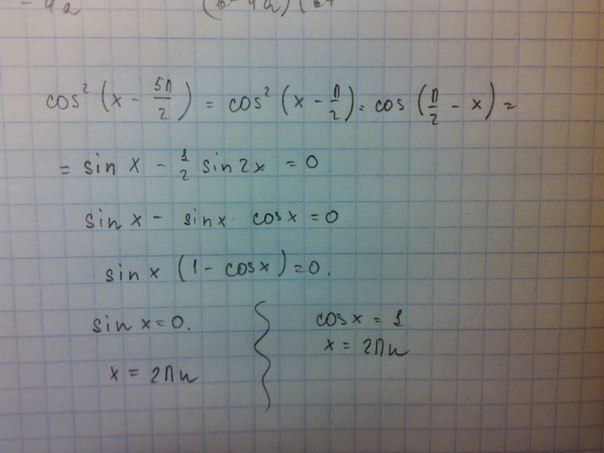 - 4a (b - 4a) (b+
cos² (x - 5π/2) = cos² (x - π/2) = cos (π/2 - x) =
= sin x - 1/2 sin 2x = 0
sin x - sin x · cos x = 0
sin x (1 - cos x) = 0.
sin x = 0. cos x = 1
x = 2πn x = 2πn